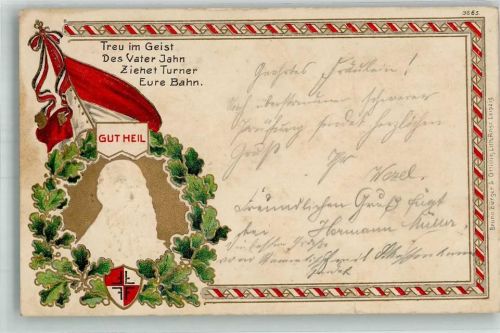 3665
Treu im Geist
Des Vater Jahn
Ziehet Turner
Eure Bahn.
GUT HEIL
Geehrtes Fräulein!
Nach überstandener schwerer
Prüfung sendet herzlichen
Gruß Ihr
Wezel.
Freundlichen Gruß fügt
bei Hermann Müller.
Bruno Bürger & Ottillie, Lith. Anst. Leipzig.